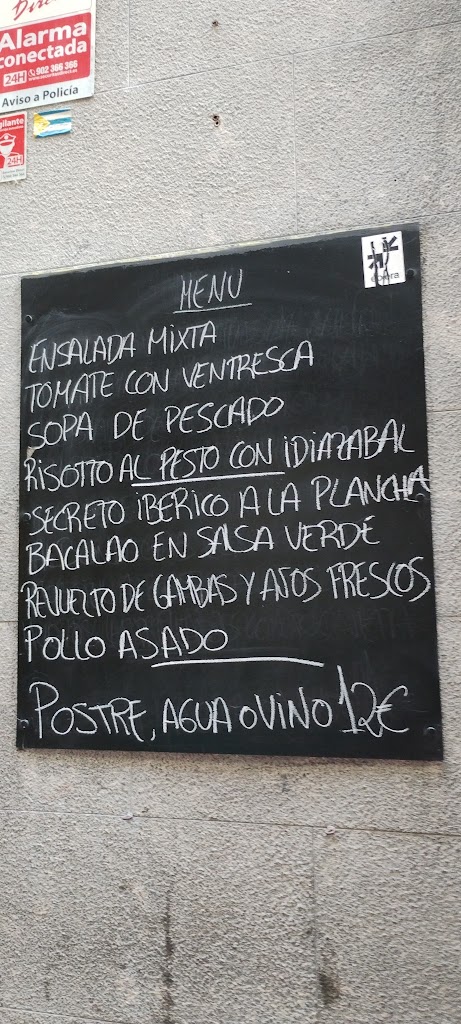 Alarma
conectada
24H 902 366 366
Aviso a Policía
24H
MENU
ENSALADA MIXTA
TOMATE CON VENTRESCA
SOPA DE PESCADO
RISOTTO AL PESTO CON IDIAZABAL
SECRETO IBERICO A LA PLANCHA
BACALAO EN SALSA VERDE
REVUELTO DE GAMBAS Y AJOS FRESCOS
POLLO ASADO
POSTRE, AGUA O VINO 12€